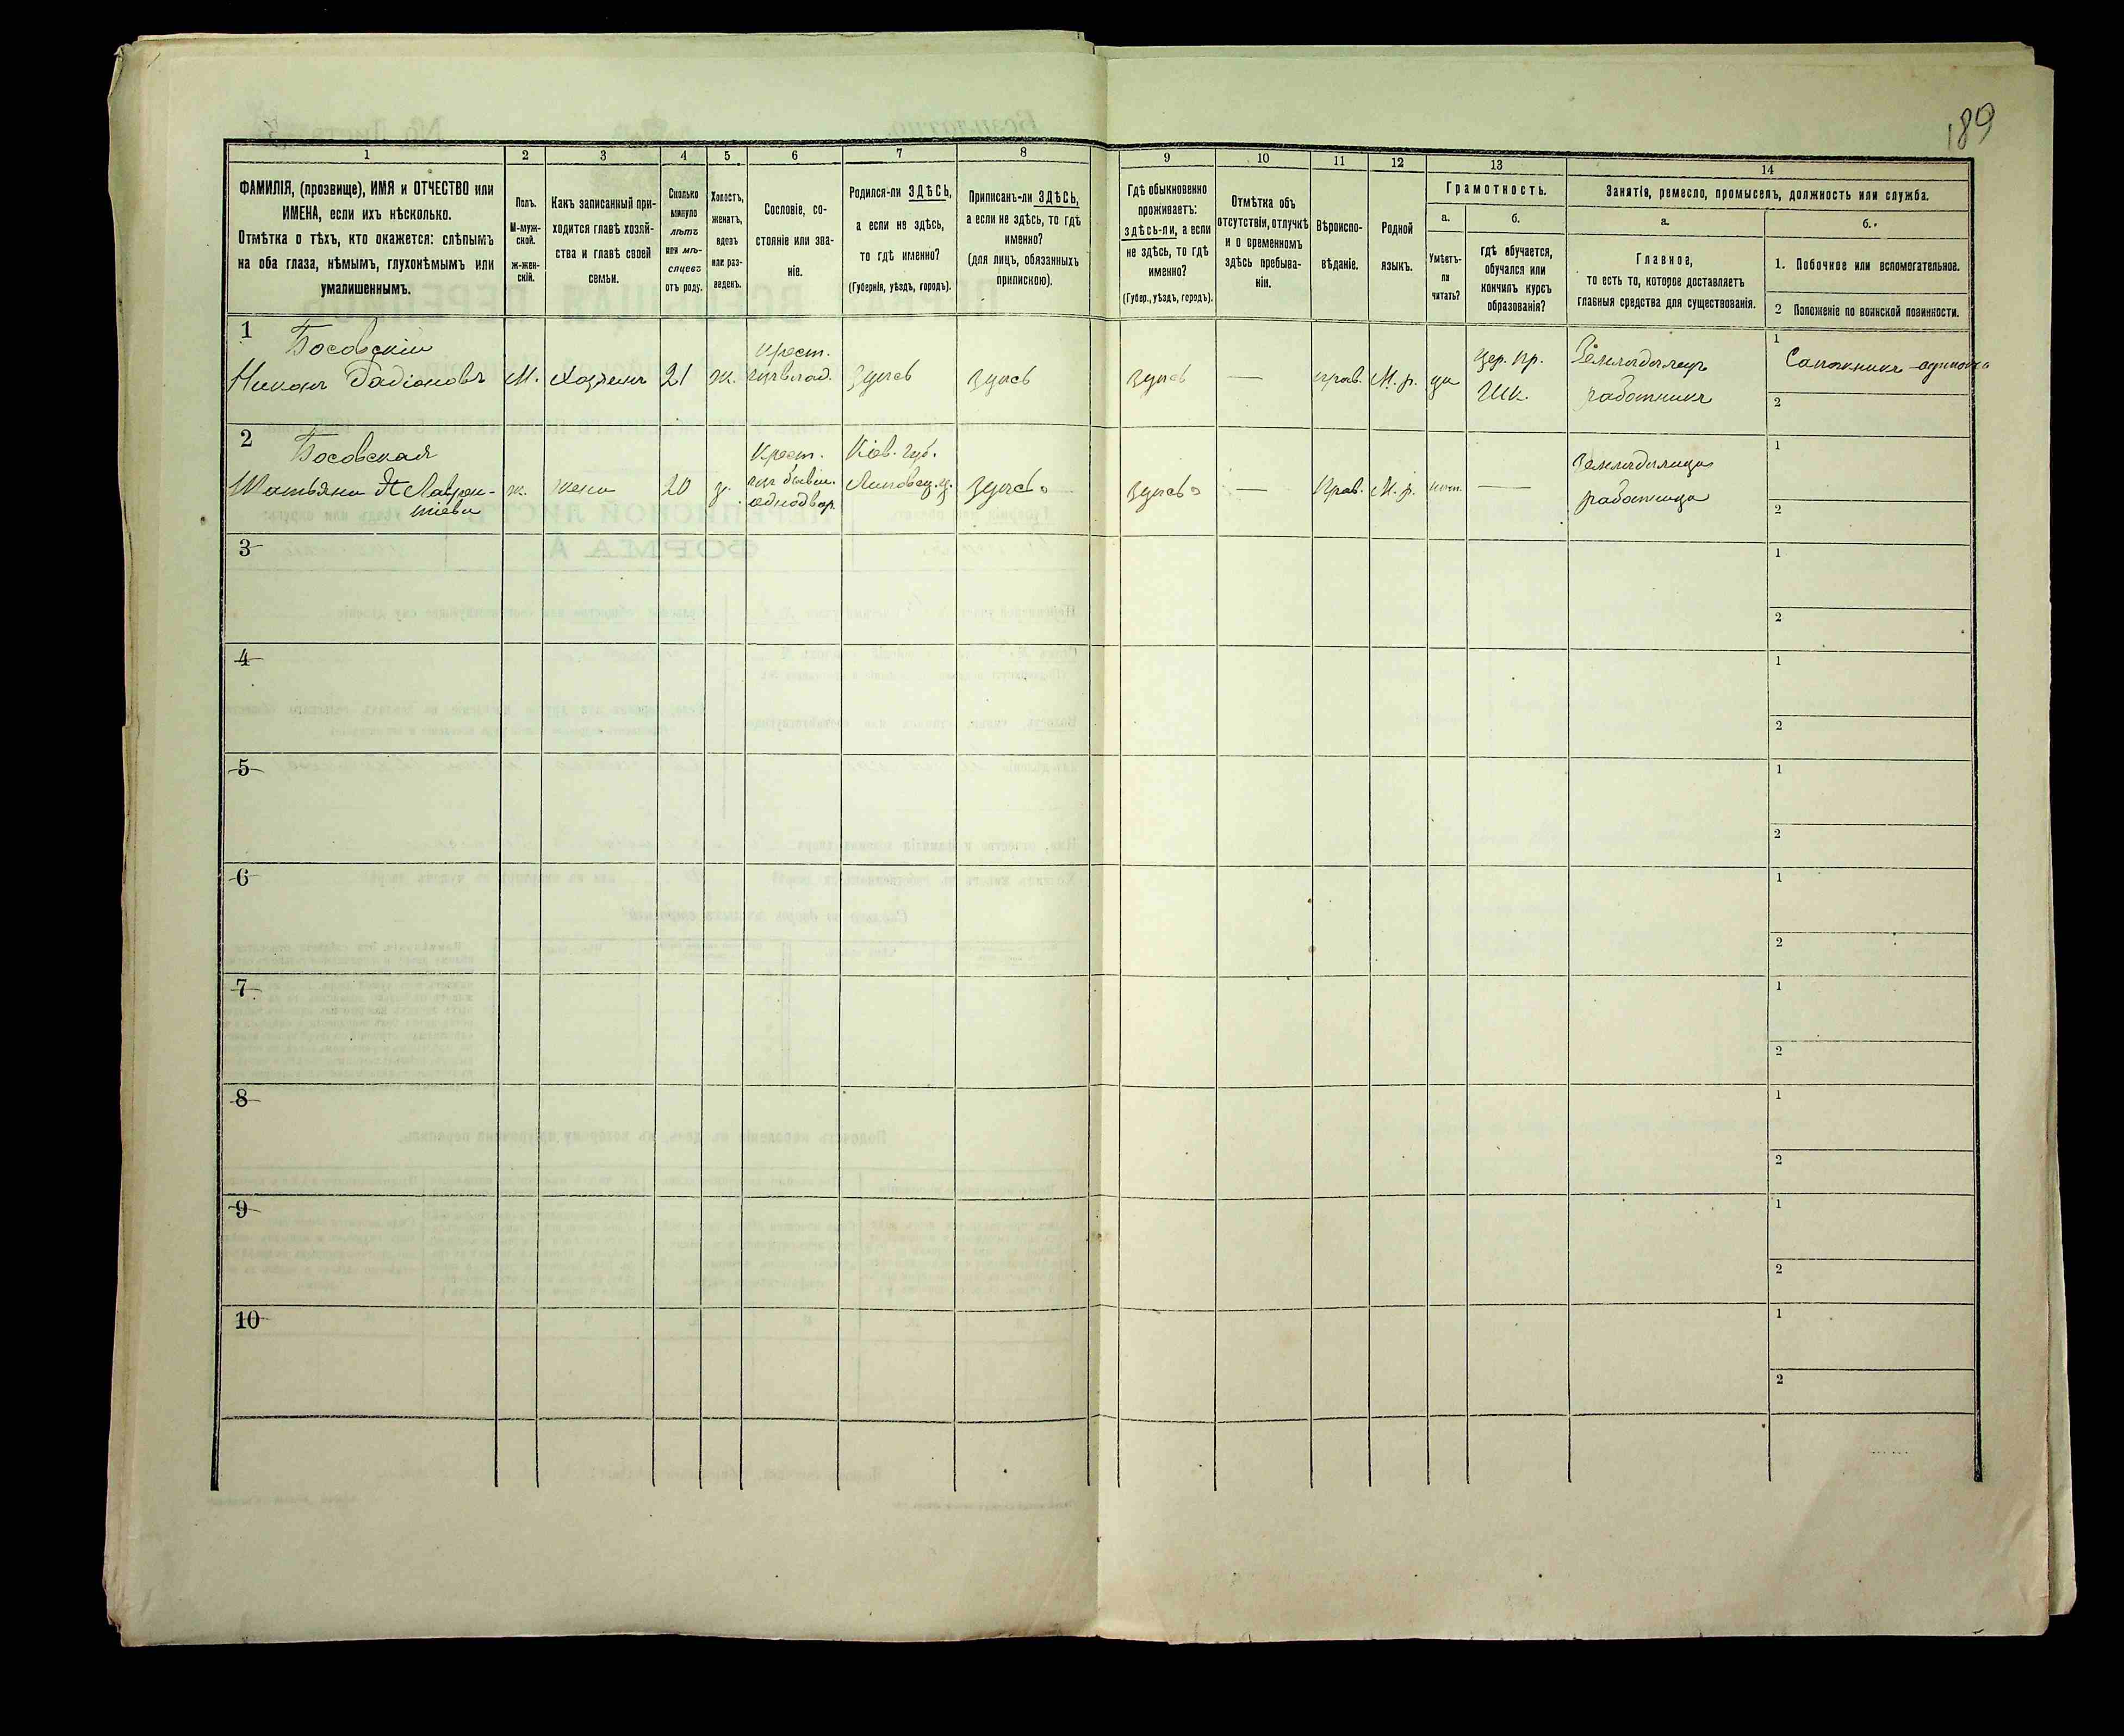 189
1
2
3
4
5
6
7
8
9
10
11
12
13
14
ФАМИЛІЯ, (прозвище), ИМЯ и ОТЧЕСТВО или
ИМЕНА, если ихъ нѣсколько.
Отмѣтка о тѣхъ, кто окажется: слѣпымъ
на оба глаза, нѣмымъ, глухонѣмымъ или
умалишеннымъ.
Полъ.
М-муж-
ской.
ж-жен-
скій.
Какъ записанный при-
ходится главѣ хозяй-
ства и главѣ своей
семьи.
Сколько
минуло
лѣтъ
или мѣ-
сяцевъ
отъ роду.
Холостъ,
женатъ,
вдовъ
или раз-
веденъ.
Сословіе, со-
стояніе или зва-
ніе.
Родился-ли ЗДѢСЬ,
а если не здѣсь,
то гдѣ именно?
(Губернія, уѣздъ, городъ).
Приписанъ-ли ЗДѢСЬ,
а если не здѣсь, то гдѣ
именно?
(для лицъ, обязанныхъ
припискою).
Гдѣ обыкновенно
проживаетъ:
здѣсь-ли, а если
не здѣсь, то гдѣ
именно?
(Губер., уѣздъ, городъ).
Отмѣтка объ
отсутствіи, отлучкѣ
и о временномъ
здѣсь пребыва-
ніи.
Вѣроиспо-
вѣданіе.
Родной
языкъ.
Грамотность.
а.
Умѣетъ-
ли
читать?
б.
гдѣ обучается,
обучался или
кончилъ курсъ
образованія?
Занятія, ремесло, промыселъ, должность или служба.
а.
Главное,
то есть то, которое доставляетъ
главныя средства для существованія.
б.
1. Побочное или вспомогательное.
2 Положеніе по воинской повинности.
1
Босовскій
Никонъ Радіоновъ
М.
хозяинъ
21
ж.
Крест.
здѣсь
здѣсь
здѣсь
—
прав.
М. р.
да
Цер. пр.
шк.
работникъ
1
Сапожникъ - одиночка
2
2
Босовская
Татьяна Лаврен-
тіева
ж.
жена
20
з.
Крест.
однодвор.
Кіев. губ.
Липовец. у.
здѣсь
здѣсь
—
Прав.
М. р.
нѣт.
—
Земледѣлица
работница
1
2
3
1
2
4
1
2
5
1
2
6
1
2
7
1
2
8
1
2
9
1
2
10
1
2